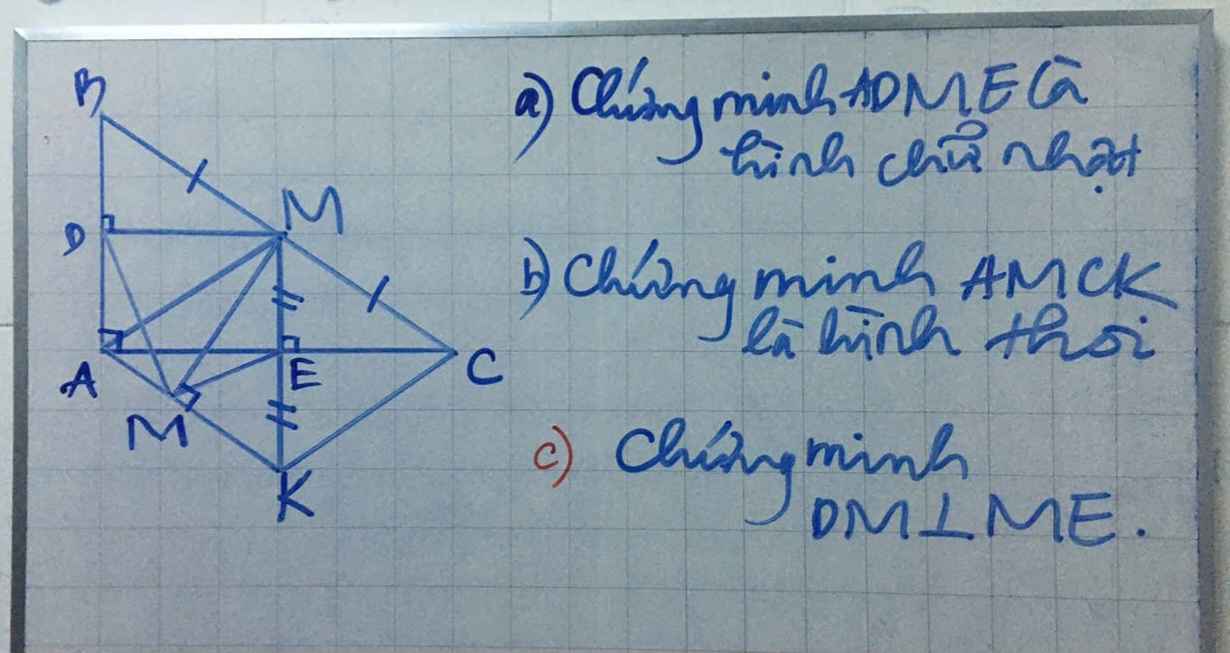 B
a) Chứng minh ADME là
hình chữ nhật
M
D
b) Chứng minh AMCK
là hình thoi
A
E
C
M
K
c) Chứng minh
DM⊥ME.